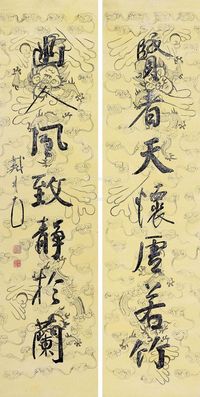 賢者天懷虛若竹
幽人風致靜於蘭
戴